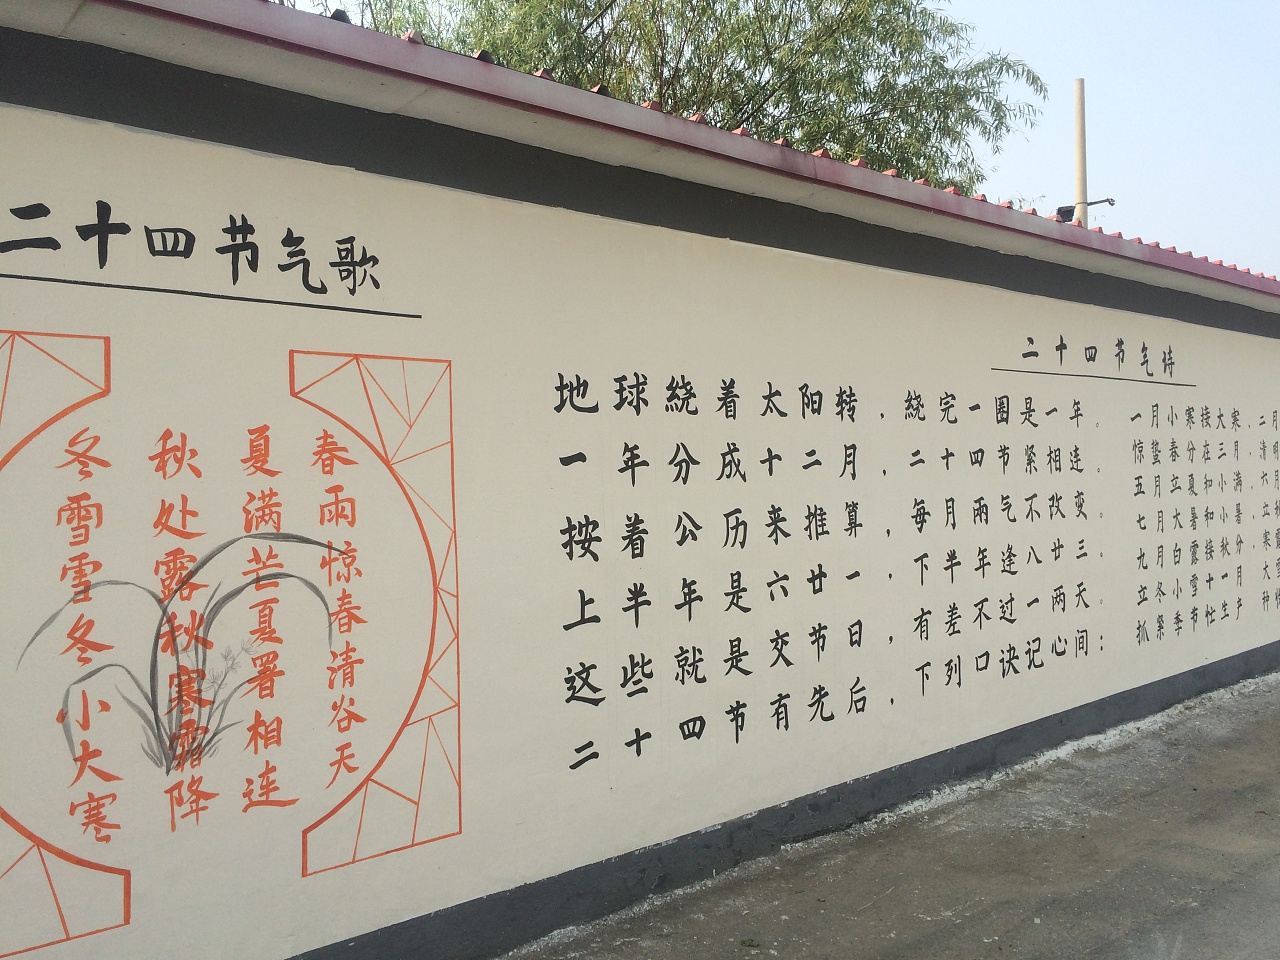 二十四节气歌
春雨惊春清谷天
夏满芒夏署相连
秋处露秋寒霜降
冬雪雪冬小大寒
地球繞着太阳转，繞完一圈是一年。
一年分成十二月，二十四节紧相连。
按着公历来推算，每月兩气不改变。
上半年是六廿一，下半年逢八廿三。
这些就是交节日，有差不过一两天。
二十四节有先后，下列口诀记心间：
二十四节气诗
一月小寒接大寒，二月
惊蛰春分在三月，清明
五月立夏和小满，六月
七月大暑和小暑，立秋
九月白露接秋分，寒露
立冬小雪十一月，大雪
抓紧季节忙生产，种